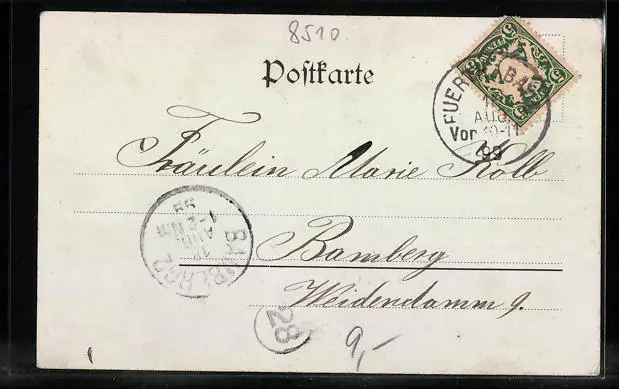 8510
Postkarte
FUERTH BAY.
AUG.
Vor. 10-11
99
5 5
Fräulein Marie Kolb
Bamberg
Weidendamm 9.
BAMBERG 2
AUG.
99
28
9,-